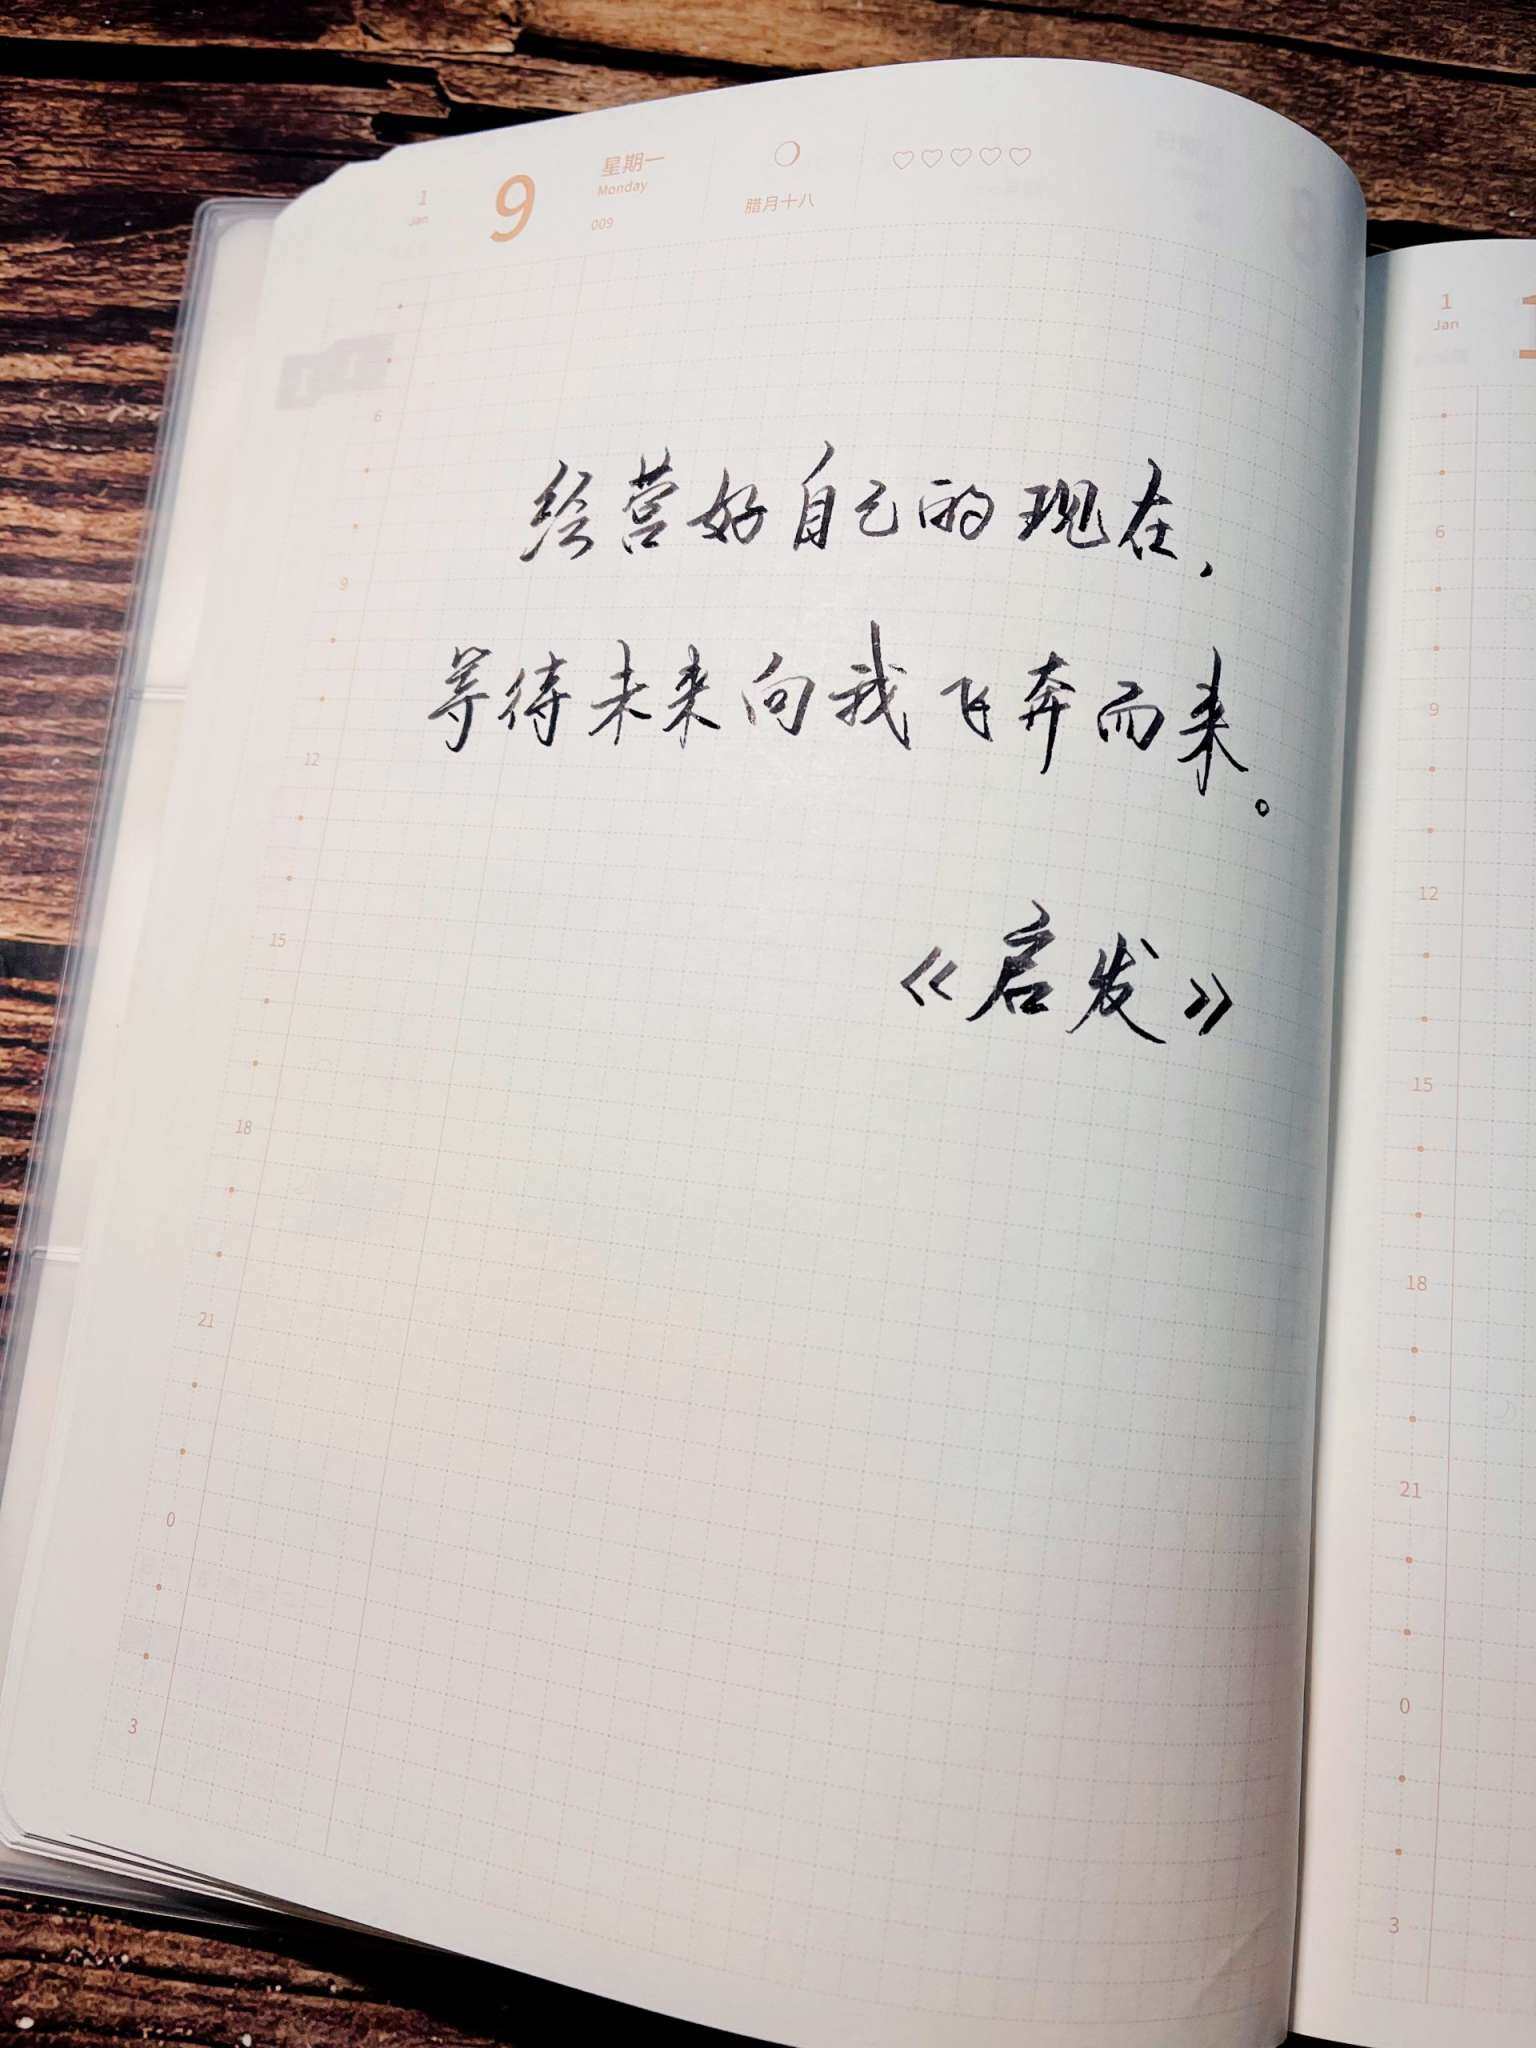 1
Jan
9
星期一
Monday
009
腊月十八
6
9
12
15
18
21
0
3
经营好自己的现在，
等待未来向我飞奔而来。
《启发》
1
Jan
6
9
12
15
18
21
0
3